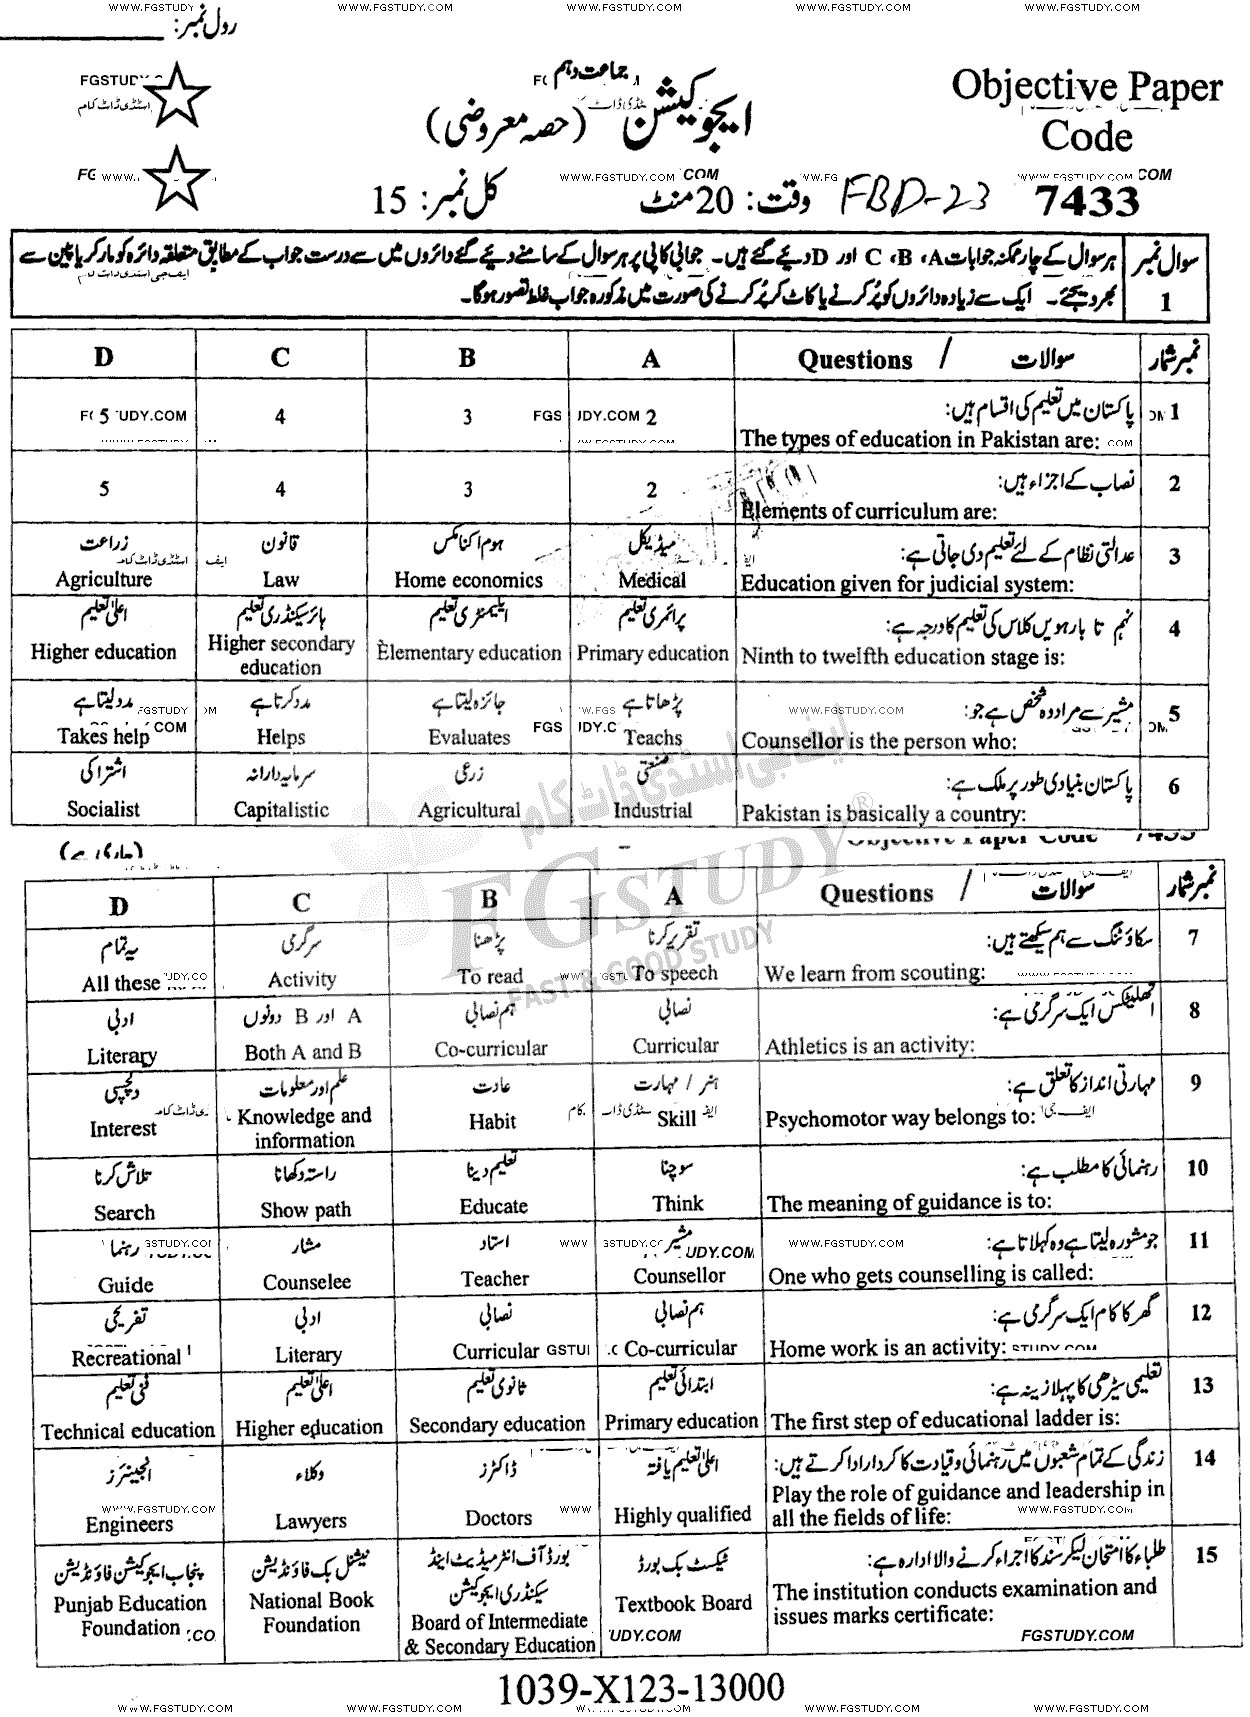 WWW.FGSTUDY.COM WWW.FGSTUDY.COM WWW.FGSTUDY.COM WWW.FGSTUDY.COM WWW.FGSTUDY.COM
رول نمبر:
جماعت دہم
ایجوکیشن (حصہ معروضی)
Objective Paper
Code
7433
FBD-23
وقت: 20 منٹ
کل نمبر: 15
سوال نمبر 1
ہر سوال کے چار ممکنہ جوابات A، B، C اور D دیئے گئے ہیں۔ جوابی کاپی پر ہر سوال کے سامنے دیئے گئے دائروں میں سے درست جواب کے مطابق متعلقہ دائرہ کو مارکر یا پین سے
بھر دیجئے۔ ایک سے زیادہ دائروں کو پُر کرنے یا کاٹ کر پُر کرنے کی صورت میں مذکورہ جواب غلط تصور ہوگا۔
D C B A Questions / سوالات نمبر شمار
پاکستان میں تعلیم کی اقسام ہیں: 1
5 4 3 2 The types of education in Pakistan are:
نصاب کے اجزاء ہیں: 2
5 4 3 2 Elements of curriculum are:
زراعت قانون ہوم اکنامکس میڈیکل عدالتی نظام کے لئے تعلیم دی جاتی ہے: 3
Agriculture Law Home economics Medical Education given for judicial system:
اعلیٰ تعلیم ہائر سیکنڈری تعلیم ایلیمنٹری تعلیم پرائمری تعلیم نہم تا بارہویں کلاس کی تعلیم کا درجہ ہے: 4
Higher education Higher secondary education Elementary education Primary education Ninth to twelfth education stage is:
مدد لیتا ہے مدد کرتا ہے جائزہ لیتا ہے پڑھاتا ہے مشیر سے مراد وہ شخص ہے جو: 5
Takes help Helps Evaluates Teachs Counsellor is the person who:
اشتراکی سرمایہ دارانہ زرعی صنعتی پاکستان بنیادی طور پر ملک ہے: 6
Socialist Capitalistic Agricultural Industrial Pakistan is basically a country:
(جاری ہے)
Objective Paper Code 7433
D C B A Questions / سوالات نمبر شمار
یہ تمام سرگرمی پڑھنا تقریر کرنا سکاؤٹنگ سے ہم سیکھتے ہیں: 7
All these Activity To read To speech We learn from scouting:
ادبی A اور B دونوں ہم نصابی نصابی اتھلیٹکس ایک سرگرمی ہے: 8
Literary Both A and B Co-curricular Curricular Athletics is an activity:
دلچسپی علم اور معلومات عادت ہنر / مہارت مہارتی انداز کا تعلق ہے: 9
Interest Knowledge and information Habit Skill Psychomotor way belongs to:
تلاش کرنا راستہ دکھانا تعلیم دینا سوچنا رہنمائی کا مطلب ہے: 10
Search Show path Educate Think The meaning of guidance is to:
رہنما مشار استاد مشیر جو مشورہ لیتا ہے وہ کہلاتا ہے: 11
Guide Counselee Teacher Counsellor One who gets counselling is called:
تفریحی ادبی نصابی ہم نصابی گھر کا کام ایک سرگرمی ہے: 12
Recreational Literary Curricular Co-curricular Home work is an activity:
فنی تعلیم اعلیٰ تعلیم ثانوی تعلیم ابتدائی تعلیم تعلیمی سیڑھی کا پہلا زینہ ہے: 13
Technical education Higher education Secondary education Primary education The first step of educational ladder is:
انجینئرز وکلاء ڈاکٹرز اعلیٰ تعلیم یافتہ زندگی کے تمام شعبوں میں رہنمائی و قیادت کا کردار ادا کرتے ہیں: 14
Engineers Lawyers Doctors Highly qualified Play the role of guidance and leadership in
all the fields of life:
پنجاب ایجوکیشن فاؤنڈیشن نیشنل بک فاؤنڈیشن بورڈ آف انٹرمیڈیٹ اینڈ سیکنڈری ایجوکیشن ٹیکسٹ بک بورڈ طلباء کا امتحان لیکر سند کا اجراء کرنے والا ادارہ ہے: 15
Punjab Education Foundation National Book Foundation Board of Intermediate & Secondary Education Textbook Board The institution conducts examination and
issues marks certificate:
ایف جی اسٹڈی ڈاٹ کام
FGSTUDY
FAST & GOOD STUDY
1039-X123-13000
WWW.FGSTUDY.COM WWW.FGSTUDY.COM WWW.FGSTUDY.COM WWW.FGSTUDY.COM